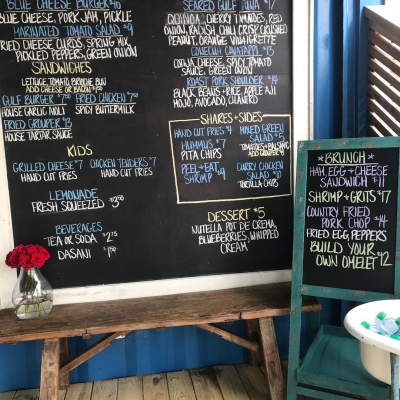 BLUE CHEESE BURGER
BLUE CHEESE, PORK JAM, PICKLE
MARINATED TOMATO SALAD $9
FRIED CHEESE CURDS, SPRING MIX,
PICKLED PEPPERS, GREEN ONION
SANDWICHES
LETTUCE, TOMATO, BRIOCHE BUN
ADD CHEESE OR BACON
GULF BURGER FRIED CHICKEN
HOUSE GARLIC AIOLI SPICY BUTTERMILK
FRIED GROUPER $13
HOUSE TARTAR SAUCE
KIDS
GRILLED CHEESE $7 CHICKEN TENDERS $7
HAND CUT FRIES HAND CUT FRIES
LEMONADE
FRESH SQUEEZED $3.50
BEVERAGES
TEA OR SODA $2.75
DASANI $1.50
SEARED GULF TUNA $17
QUINOA, CHERRY TOMATOES, RED
ONION, RADISH, CHILI CRISP, CRUSHED
PEANUT, ORANGE VINAIGRETTE
CONECUH
COTIJA CHEESE, SPICY TOMATO
SAUCE, GREEN ONION
ROAST PORK SHOULDER $14
BLACK BEANS + RICE, APPLE AJI
MOJO, AVOCADO, CILANTRO
SHARES + SIDES
HAND CUT FRIES $4
HUMMUS $7
PITA CHIPS
PEEL + EAT
SHRIMP $9
MIXED GREEN
SALAD $5
TOMATOES + BALSAMIC
ADD GROUPER
CURRY CHICKEN
SALAD $10
TORTILLA CHIPS
DESSERT $5
NUTELLA POT DE CREMA,
BLUEBERRIES, WHIPPED
CREAM
*BRUNCH*
HAM, EGG + CHEESE
SANDWICH $11
SHRIMP + GRITS $17
COUNTRY FRIED
PORK CHOP $14
FRIED EGG, PEPPERS
BUILD YOUR
OWN OMELET $12